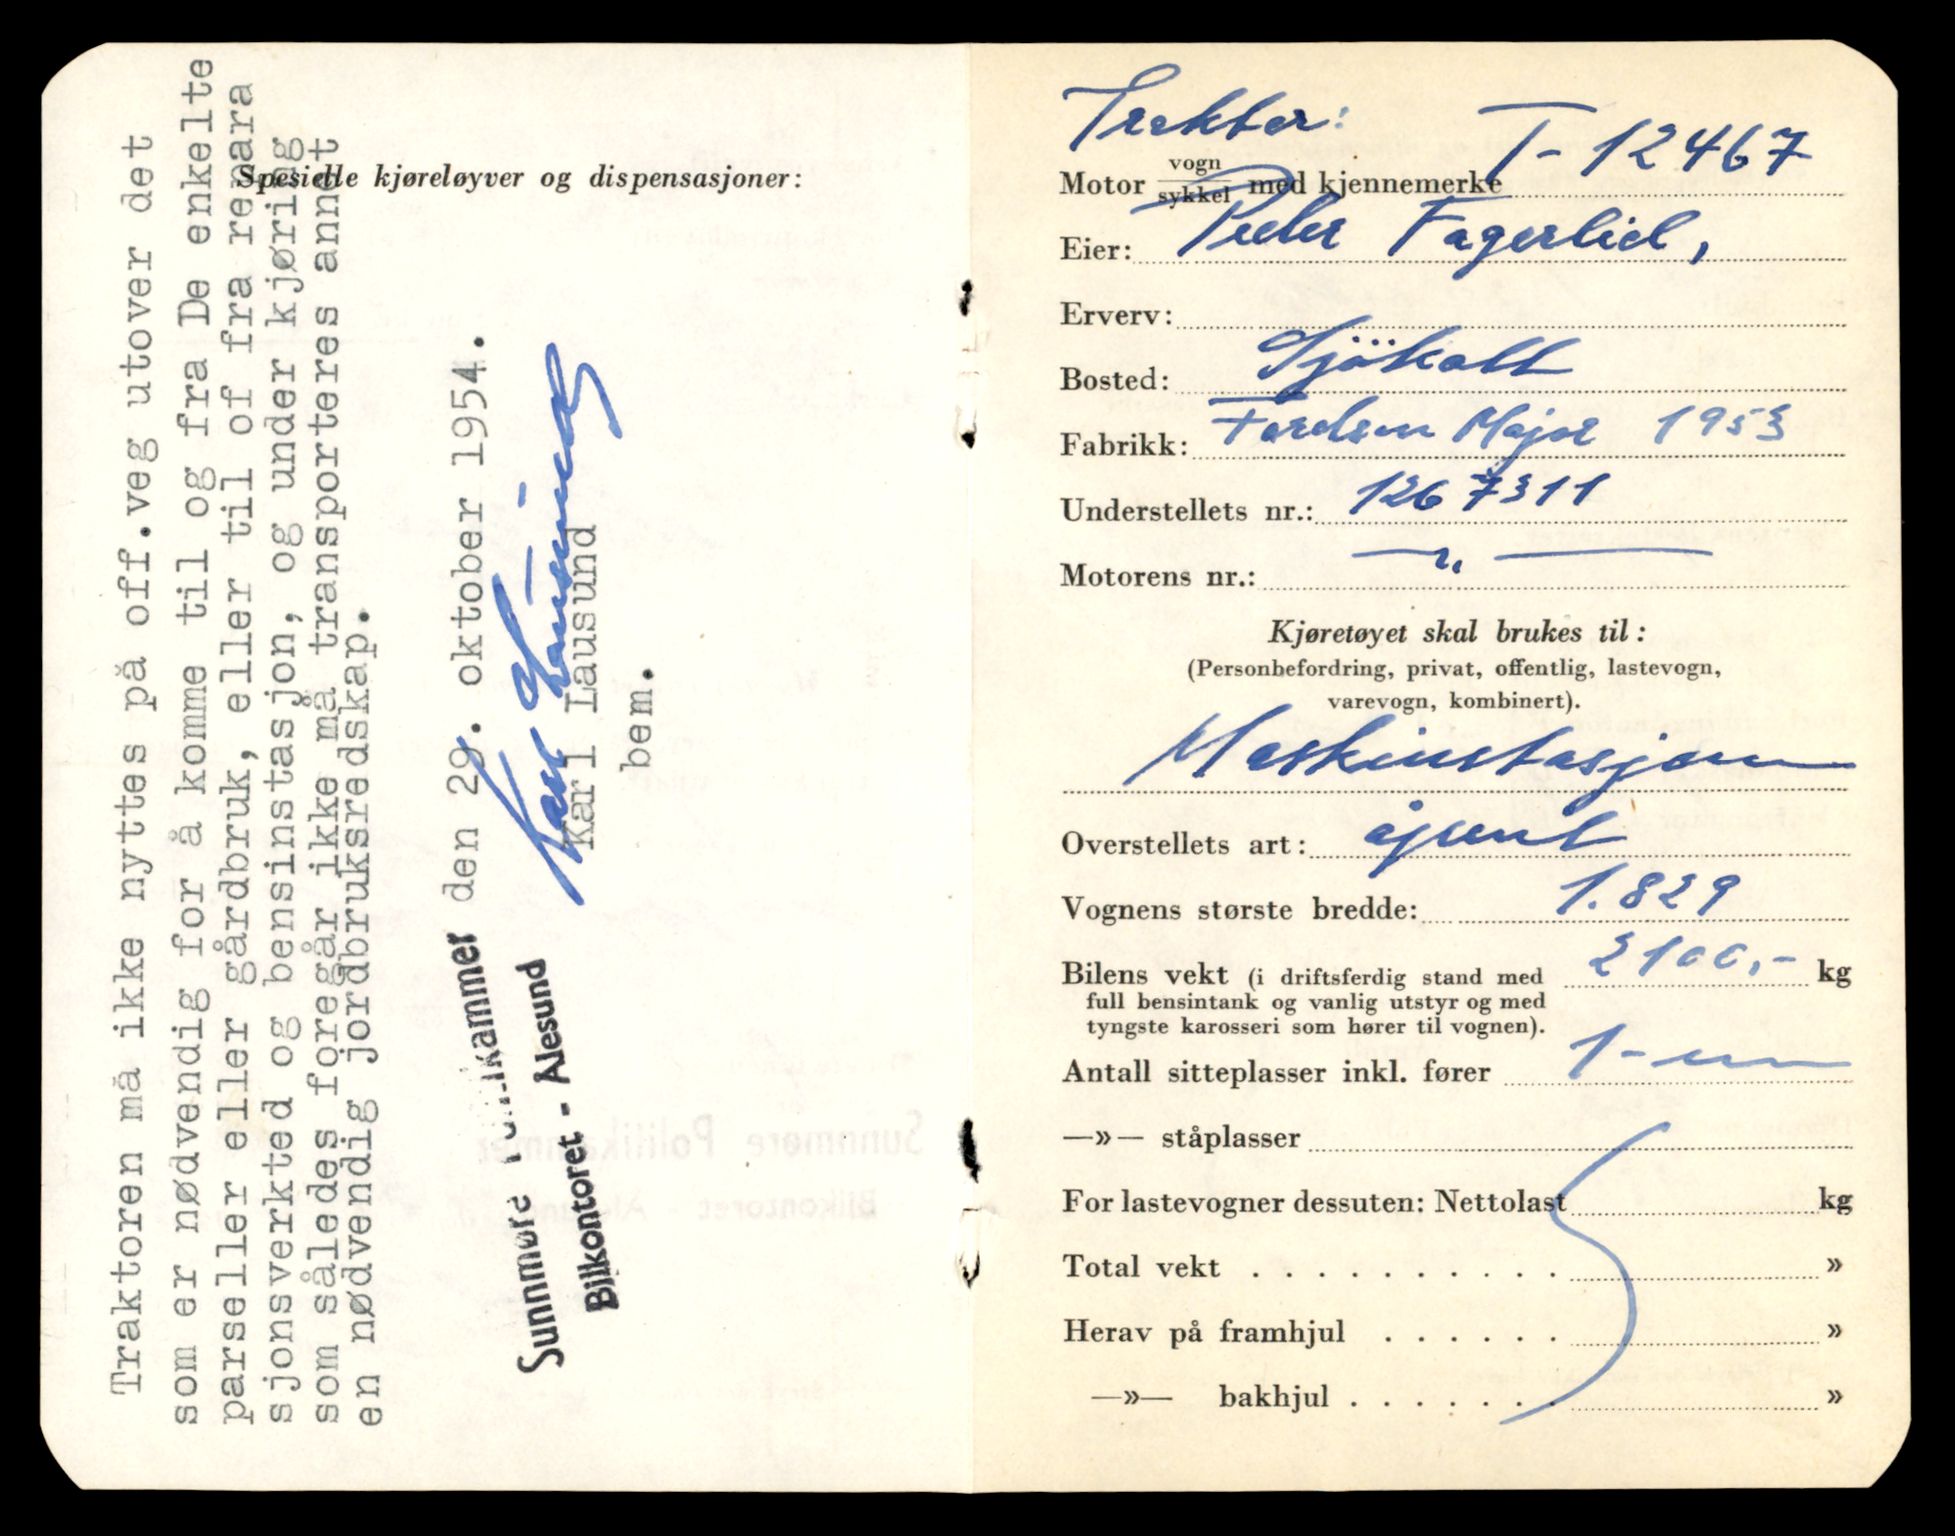 Spesielle kjøreløyver og dispensasjoner:
Traktoren må ikke nyttes på off.veg utover det
som er nødvendig for å komme til og fra De enkelte
parseller eller gårdbruk, eller til of fra repara
sjonsverkted og bensinstasjon, og under kjøring
som således foregår ikke må transporteres annet
en nødvendig jordbruksredskap.
Sunnmøre Politikammer den 29. oktober 1954.
Bilkontoret - Ålesund
Karl Lausund
Karl Lausund
bem.
Traktor:
Motor vogn/sykkel med kjennemerke T-12467
Eier: Peder Fagerlied,
Erverv:
Bosted: Sjøholt
Fabrikk: Fordson Major 1953
Understellets nr.: 1267311
Motorens nr.: — " —
Kjøretøyet skal brukes til:
(Personbefordring, privat, offentlig, lastevogn,
varevogn, kombinert).
Maskinstasjon
Overstellets art: åpent
Vognens største bredde: 1.829
Bilens vekt (i driftsferdig stand med 2100,- kg
full bensintank og vanlig utstyr og med
tyngste karosseri som hører til vognen).
Antall sitteplasser inkl. fører 1-en
—»— ståplasser
For lastevogner dessuten: Nettolast kg
Total vekt . . . . . . . . . . . »
Herav på framhjul . . . . . . »
—»— bakhjul . . . . . . . »